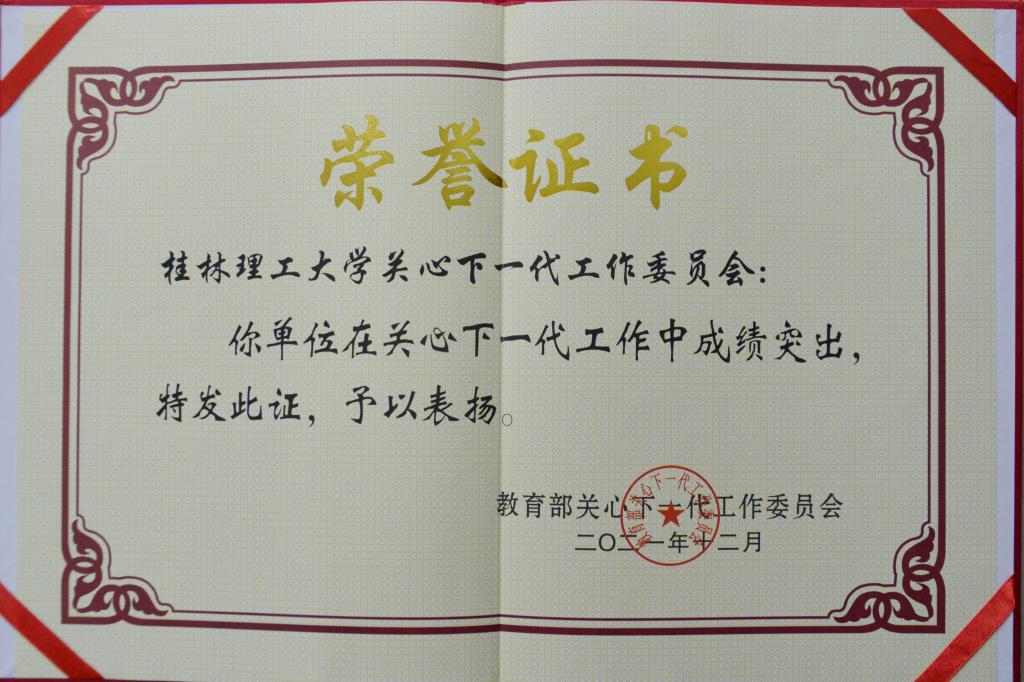 荣誉证书
桂林理工大学关心下一代工作委员会：
你单位在关心下一代工作中成绩突出，
特发此证，予以表扬。
教育部关心下一代工作委员会
二〇二一年十二月
教育部关心下一代工作委员会